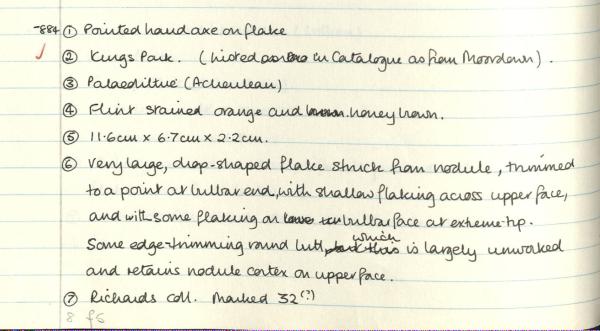 -884 ① Pointed handaxe on flake
② Kings Park. (Listed as in Catalogue as from Moordown).
③ Palaeolithic (Acheulean)
④ Flint stained orange and honey brown.
⑤ 11.6cm x 6.7cm x 2.2cm.
⑥ Very large, drop-shaped flake struck from nodule, trimmed
to a point at bulbar end, with shallow flaking across upper face,
and with some flaking on bulbar face at extreme tip.
Some edge-trimming round butt, which is largely unworked
and retains nodule cortex on upper face.
⑦ Richards coll. Marked 32(?)
8 f5